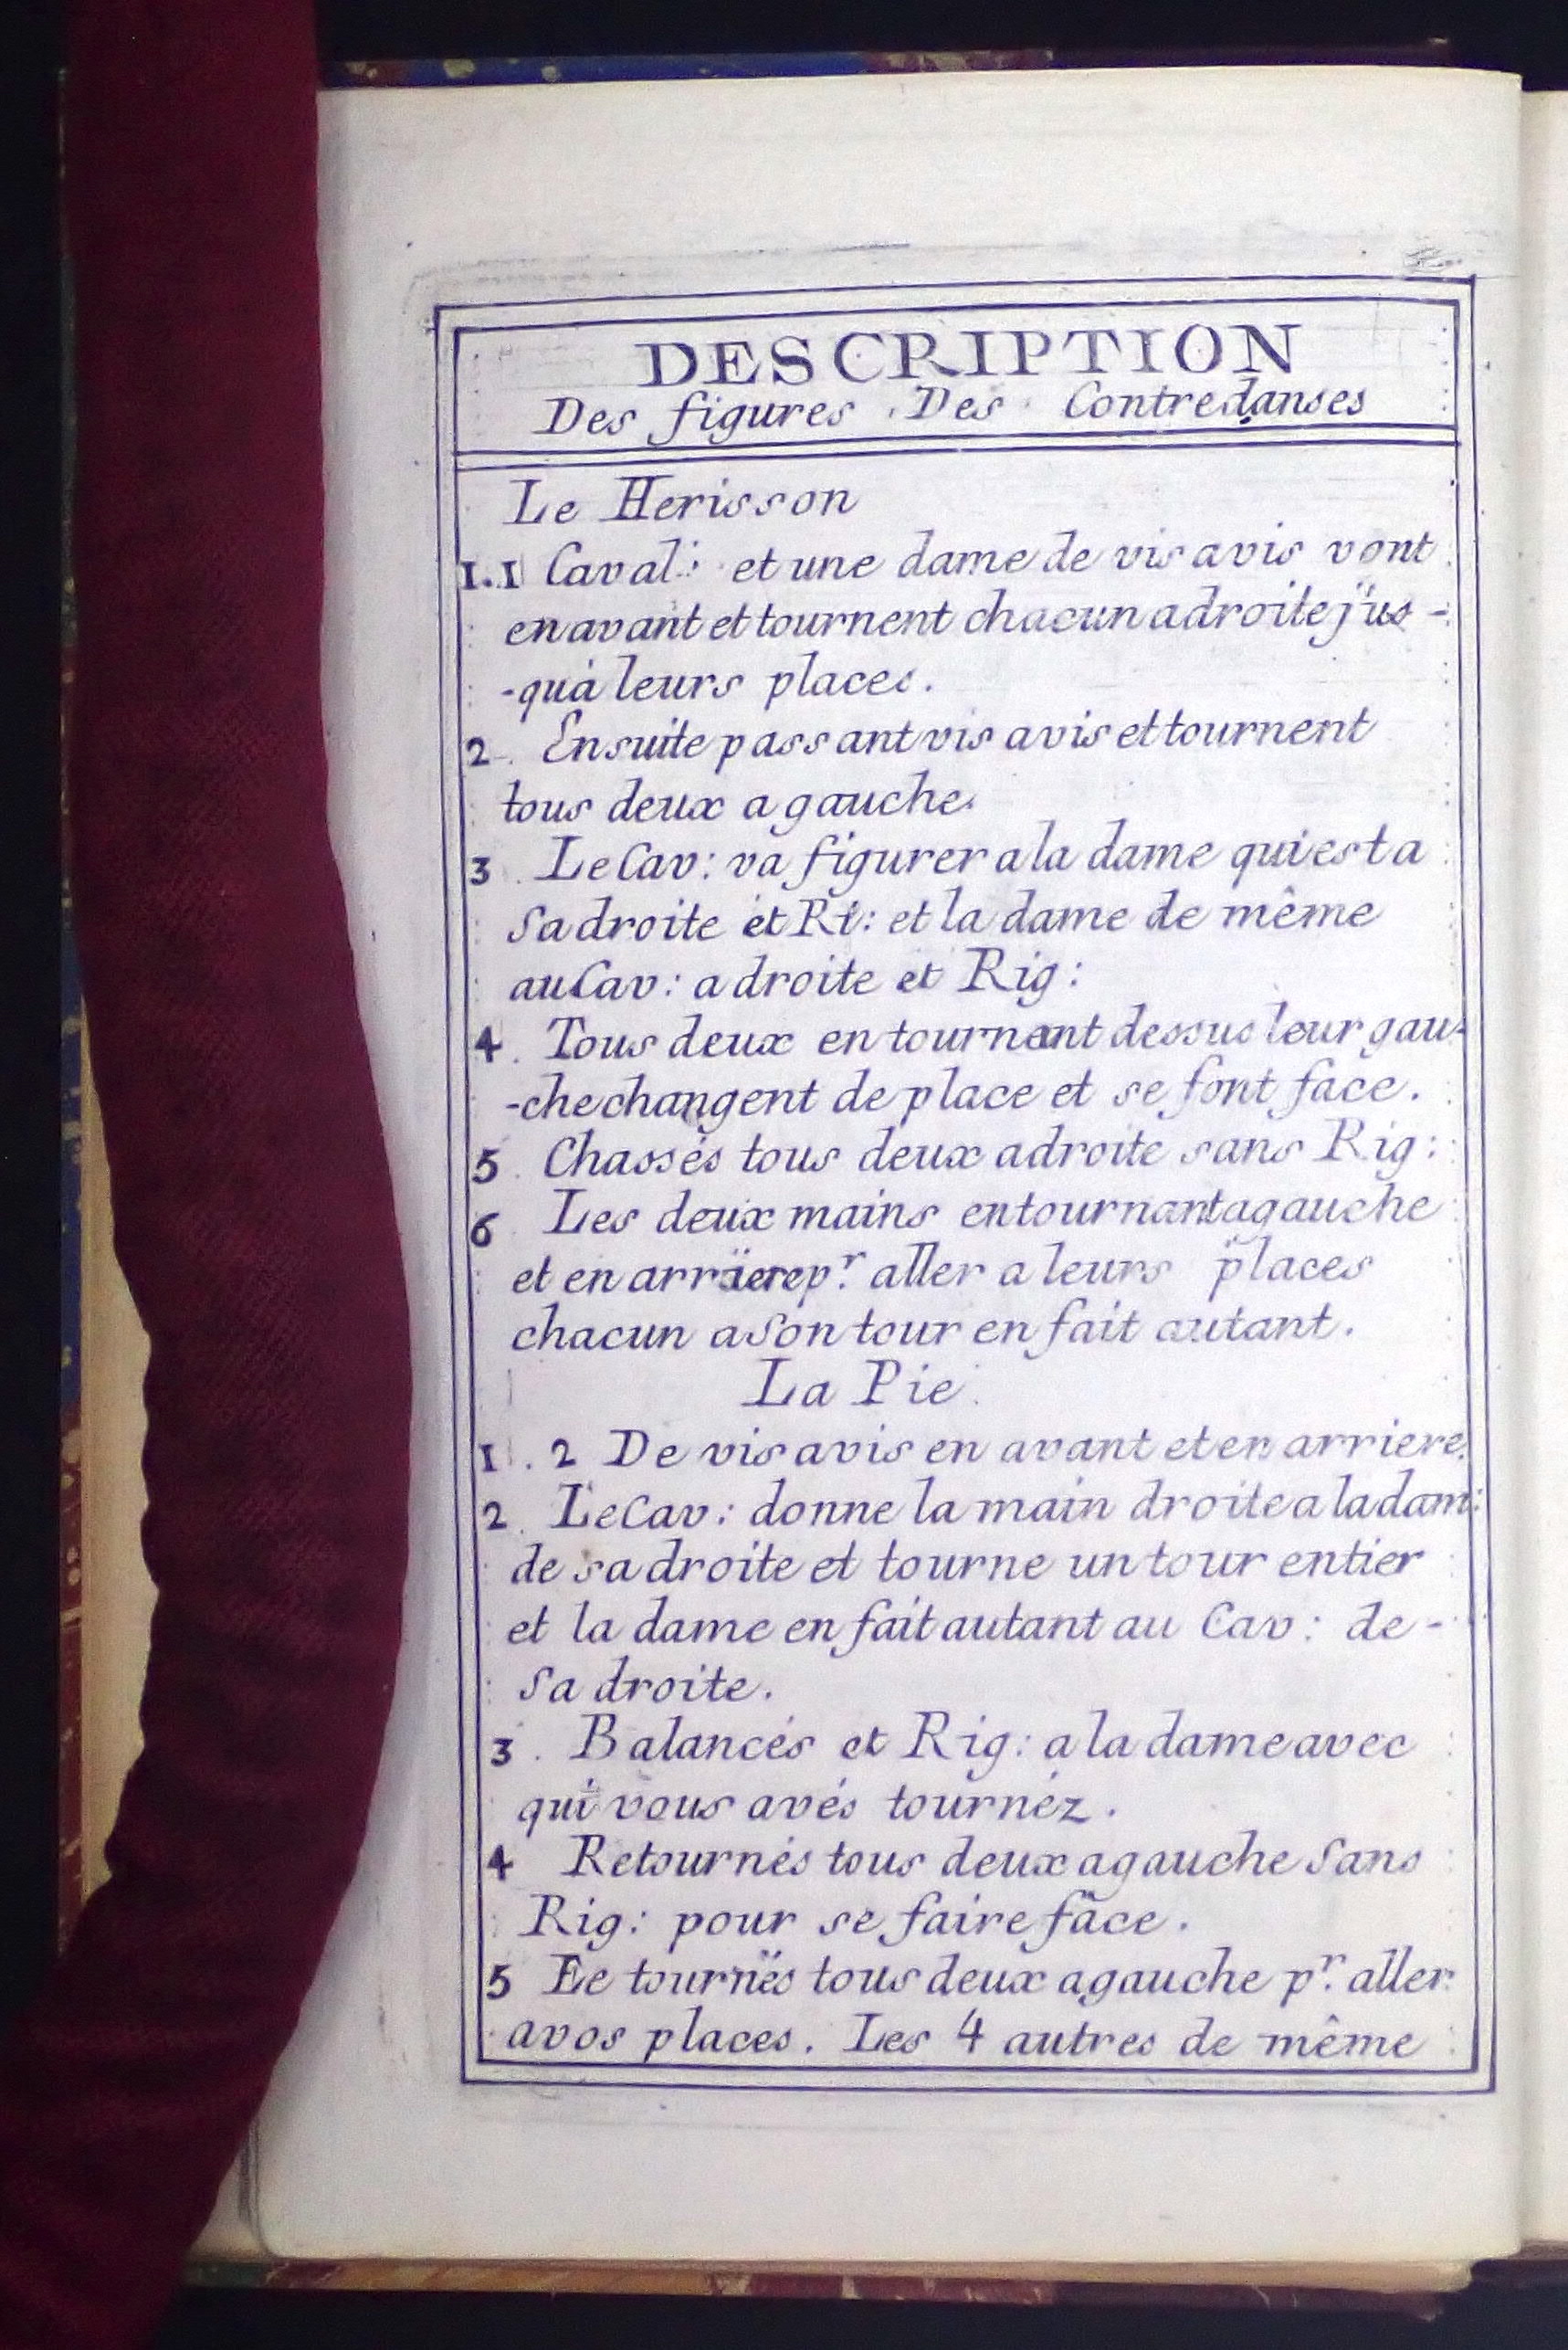 DESCRIPTION
Des figures Des Contredanses
Le Herisson
1.1 Caval: et une dame de vis avis vont
en avant et tournent chacun a droite jus-
-quà leurs places.
2. Ensuite passant vis avis et tournent
tous deux a gauche.
3. Le Cav: va figurer a la dame qui est a
Sa droite et Ri: et la dame de même
au Cav: a droite et Rig:
4. Tous deux en tournant dessus leur gau-
-che changent de place et se font face.
5. Chassés tous deux a droite sans Rig:
6 Les deux mains en tournant a gauche
et en arriere pr. aller a leurs places
chacun a Son tour en fait autant.
La Pie
1. 2 De vis avis en avant et en arriere.
2. Le Cav: donne la main droite a la dam:
de sa droite et tourne un tour entier
et la dame en fait autant au Cav: de-
Sa droite.
3. Balancés et Rig: a la dame avec
qui vous avés tournéz.
4 Retournés tous deux a gauche Sans
Rig: pour se faire face.
5 Ee tournés tous deux a gauche pr. aller
a vos places. Les 4 autres de même